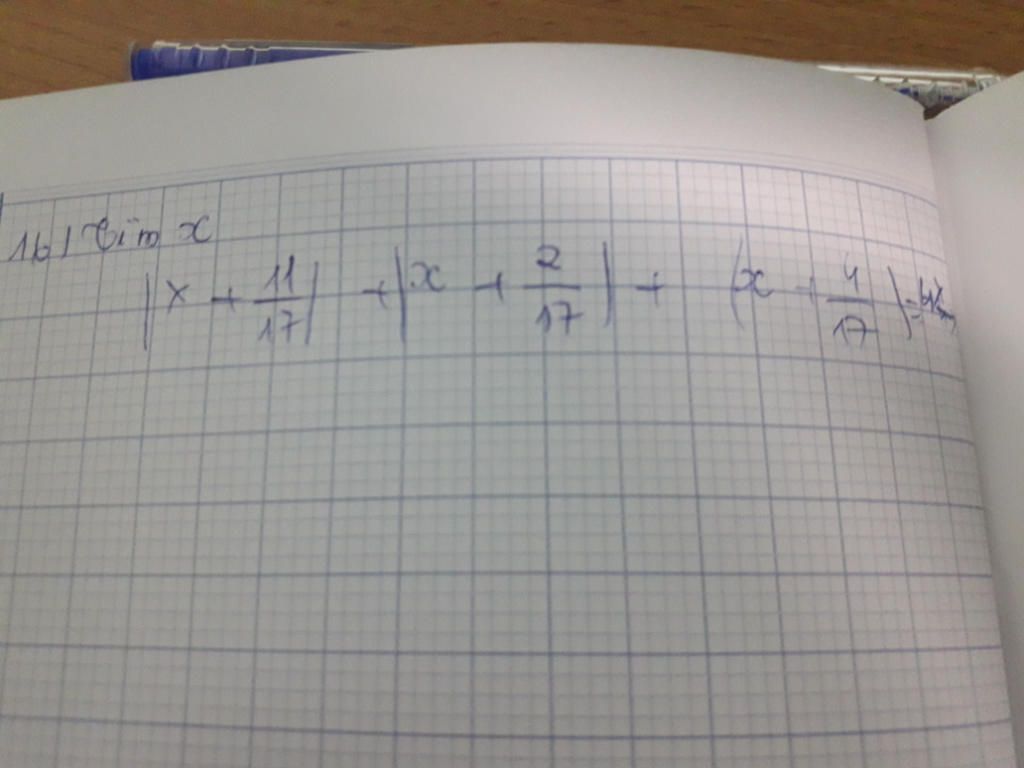 1b) Tìm x
|x + 11/17| + |x + 2/17| + |x + 4/17| =